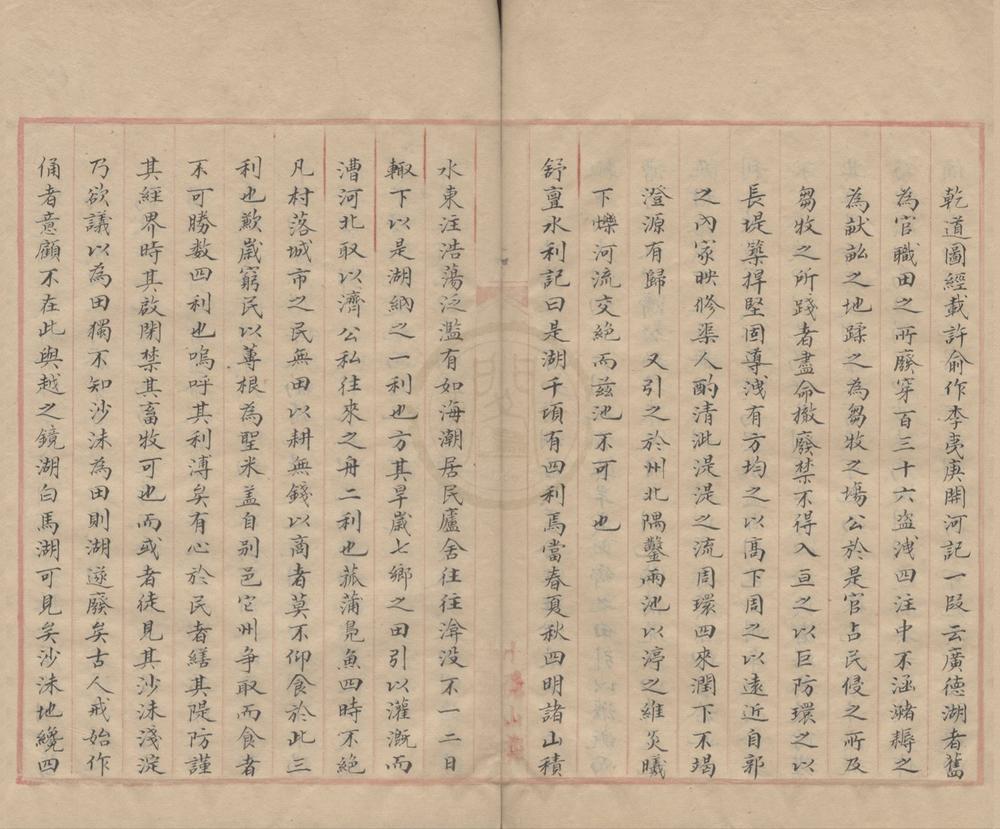 乾道圖經載許俞作李夷庚開河記一段云廣德湖者舊
為官職田之所廢穿百三十六盜洩四注中不涵瀦耨之
為献畝之地蹂之為芻牧之場公於是官占民侵之所及
芻牧之所踐者盡命撤廢禁不得入亘之以巨防環之以
長堤築捍堅固導洩有方均之以高下周之以遠近自郭
之內家映修渠人酌清泚湜湜之流周環四來潤下不竭
澄源有歸 又引之於州北隅鑿兩池以渟之維炎曦
下爍河流交絕而茲池不可 也
舒亶水利記曰是湖千頃有四利焉當春夏秋四明諸山積
水東注浩蕩泛濫有如海潮居民廬舍往往渰没不一二日
輙下以是湖納之一利也方其旱歲七鄉之田引以灌溉而
漕河北取以濟公私往來之舟二利也菰蒲鳧魚四時不絕
凡村落城市之民無田以耕無錢以商者莫不仰食於此三
利也歉歲窮民以蓴根為聖米盖自別邑它州争取而食者
不可勝數四利也嗚呼其利溥矣有心於民者繕其隄防謹
其經界時其啟閉禁其畜牧可也而或者徒見其沙沫淺淀
乃欲議以為田獨不知沙沫為田則湖遂廢矣古人戒始作
俑者意顧不在此與越之鏡湖白馬湖可見矣沙沫地纔四